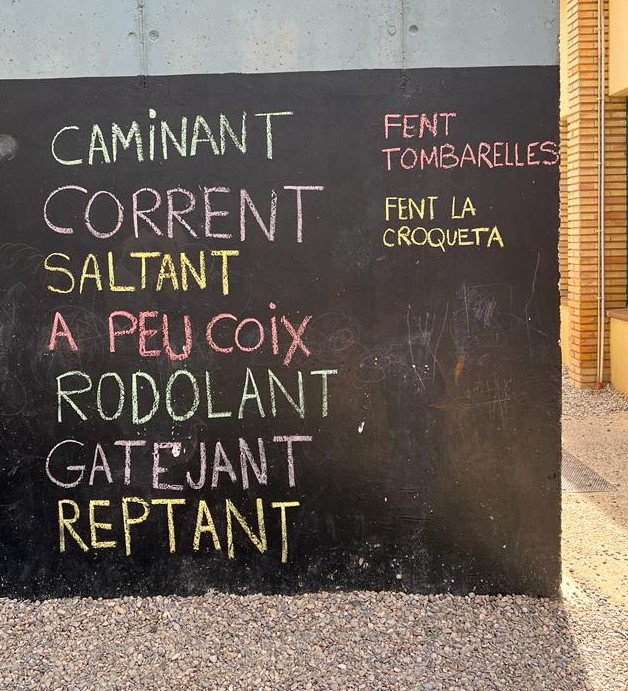 CAMiNANT
CORRENT
SALTANT
A PEU COiX
RODOLANT
GATEJANT
REPTANT
FENT
TOMBARELLES
FENT LA
CROQUETA